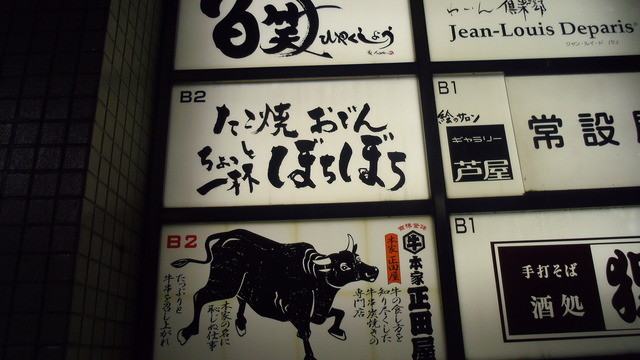 百笑
ひゃくしょう
わいん倶楽部
Jean-Louis Deparis
ジャン・ルイ・ド
B2
たこ焼 おでん
ちょっと
一杯 ぼちぼち
B1
絵のサロン
ギャラリー
芦屋
常設
B2
たっぷりと
牛串を召し上がれ
本家の名に
恥じぬ仕事
本家正田屋
本家正田屋
牛の食し方を
知りつくした
牛串炭焼きの
専門店
B1
手打そば
酒処